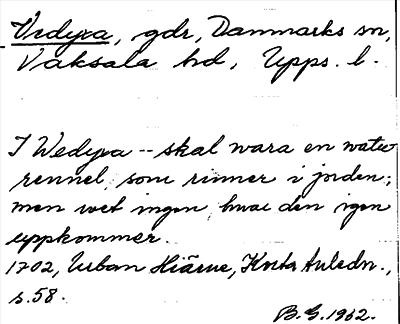 Vedyxa, gdr, Danmarks sn,
Vaksala hd, Upps. l.
I Wedyxa -- skal wara en watu-
rennel, som rinner i jorden;
men wet ingen hwar den igen
uppkommer.
1702, Urban Hiärne, Korta Anledn.,
s. 58.
B.G. 1962.